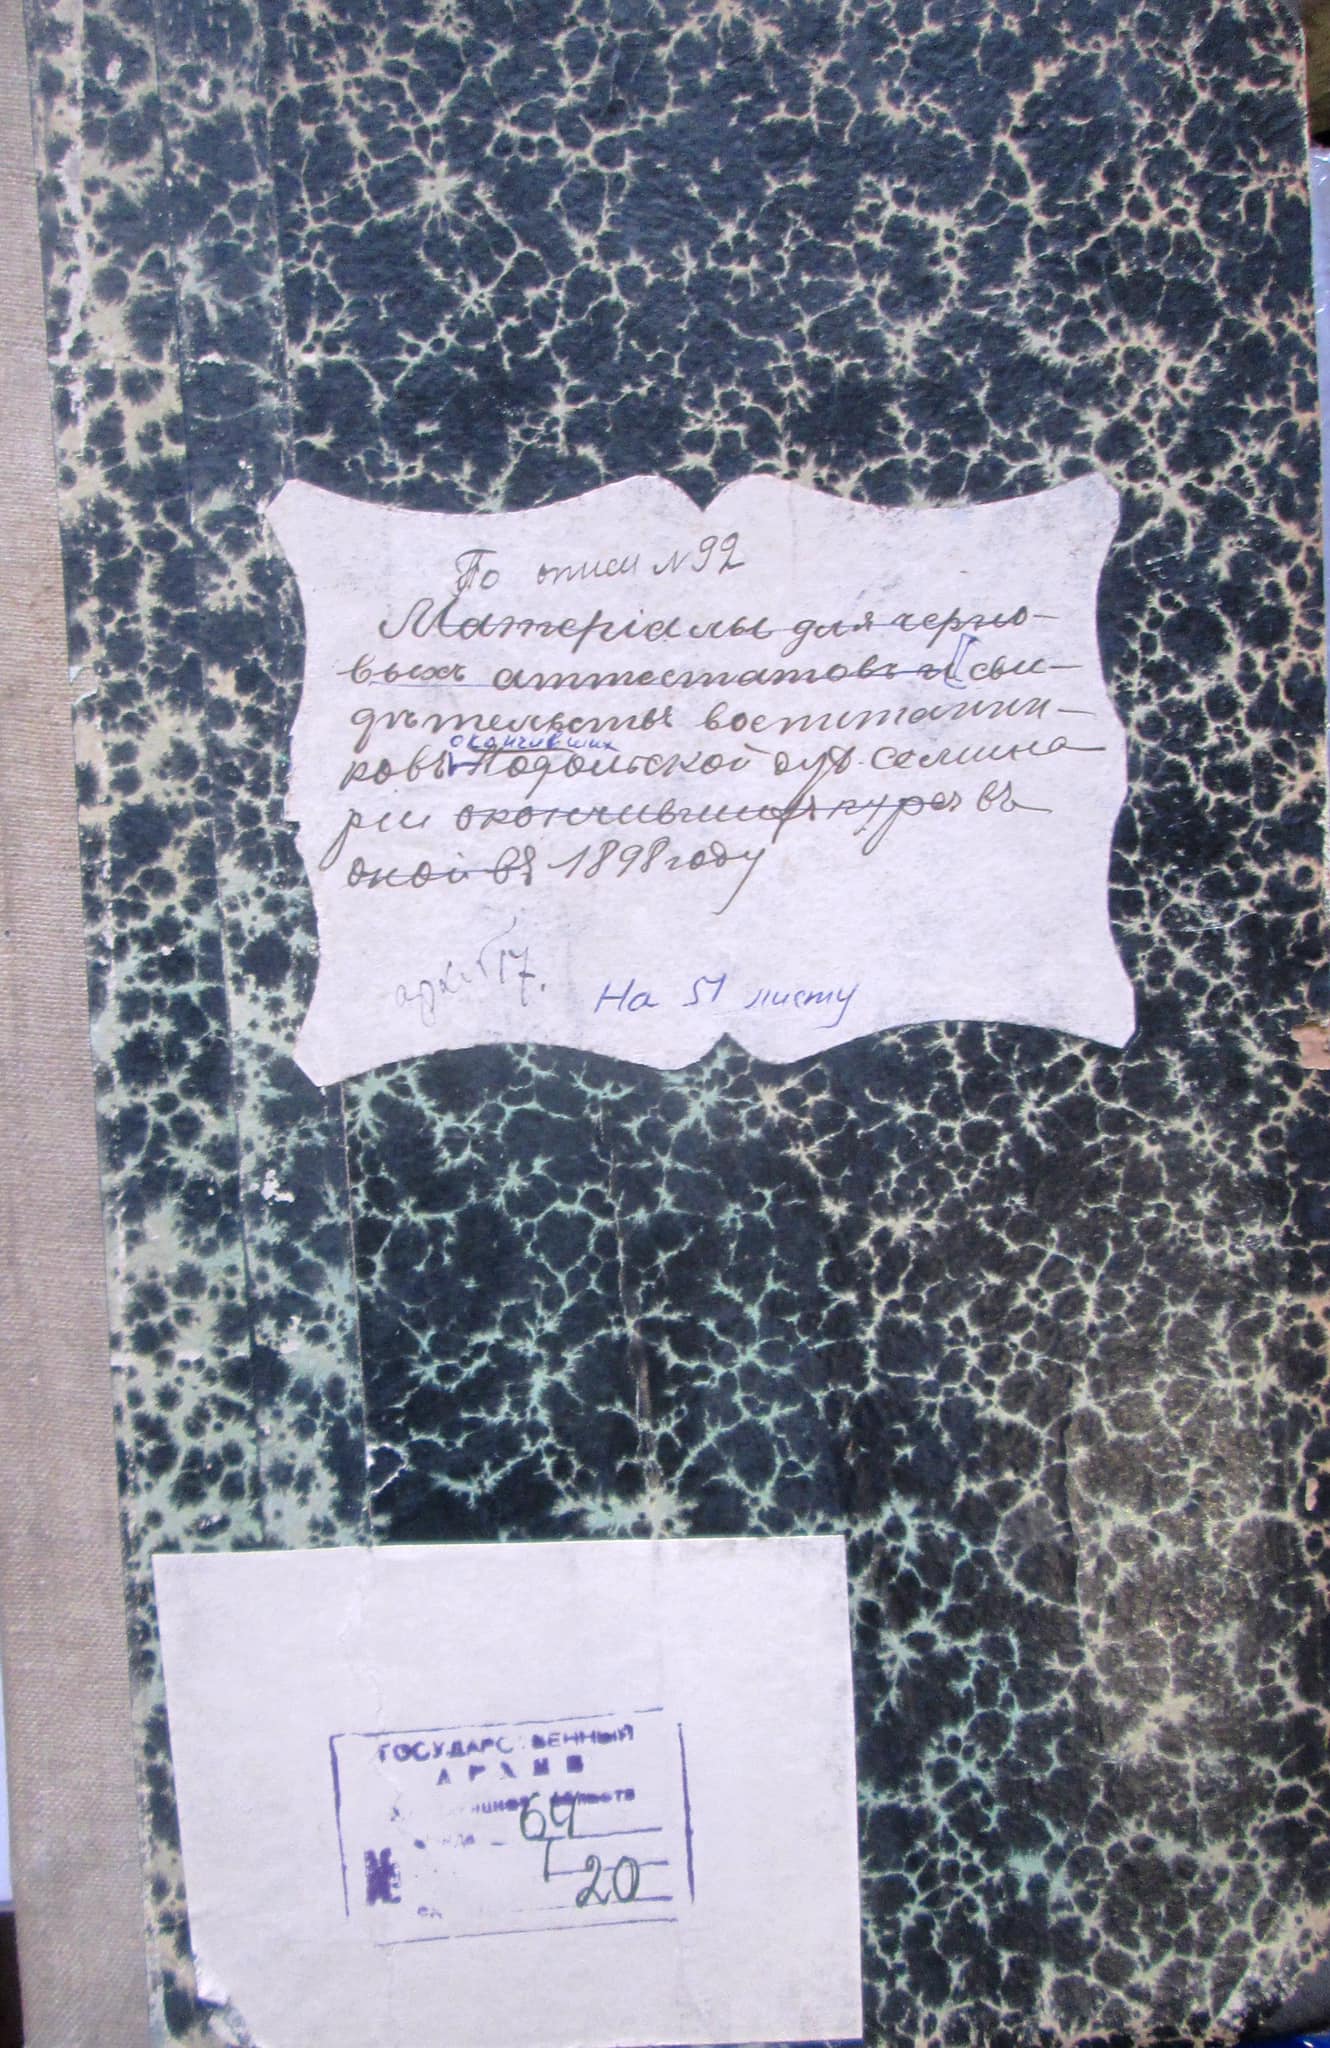 По описи №92
Матеріалы для черно-
выхъ аттестатовъ и сви-
дѣтельства воспитанни-
окончивших
ковъ Подольской дух. семина
ріи окончившихъ курсъ въ
оной въ 1898 году
17.
На 51 листу
ГОСУДАРСТВЕННЫЙ
АРХИВ
области
64
1
20